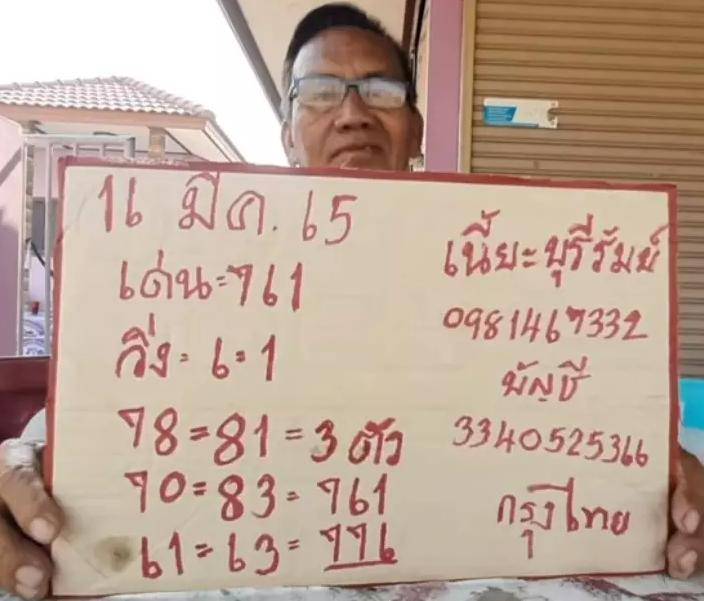 16 มีค. 65
เด่น=761
วิ่ง=6=1
78=81=3 ตัว
70=83=761
61=63=776
เนี้ยะบุรีรัมย์
0981467332
บัญชี
3340525366
กรุงไทย